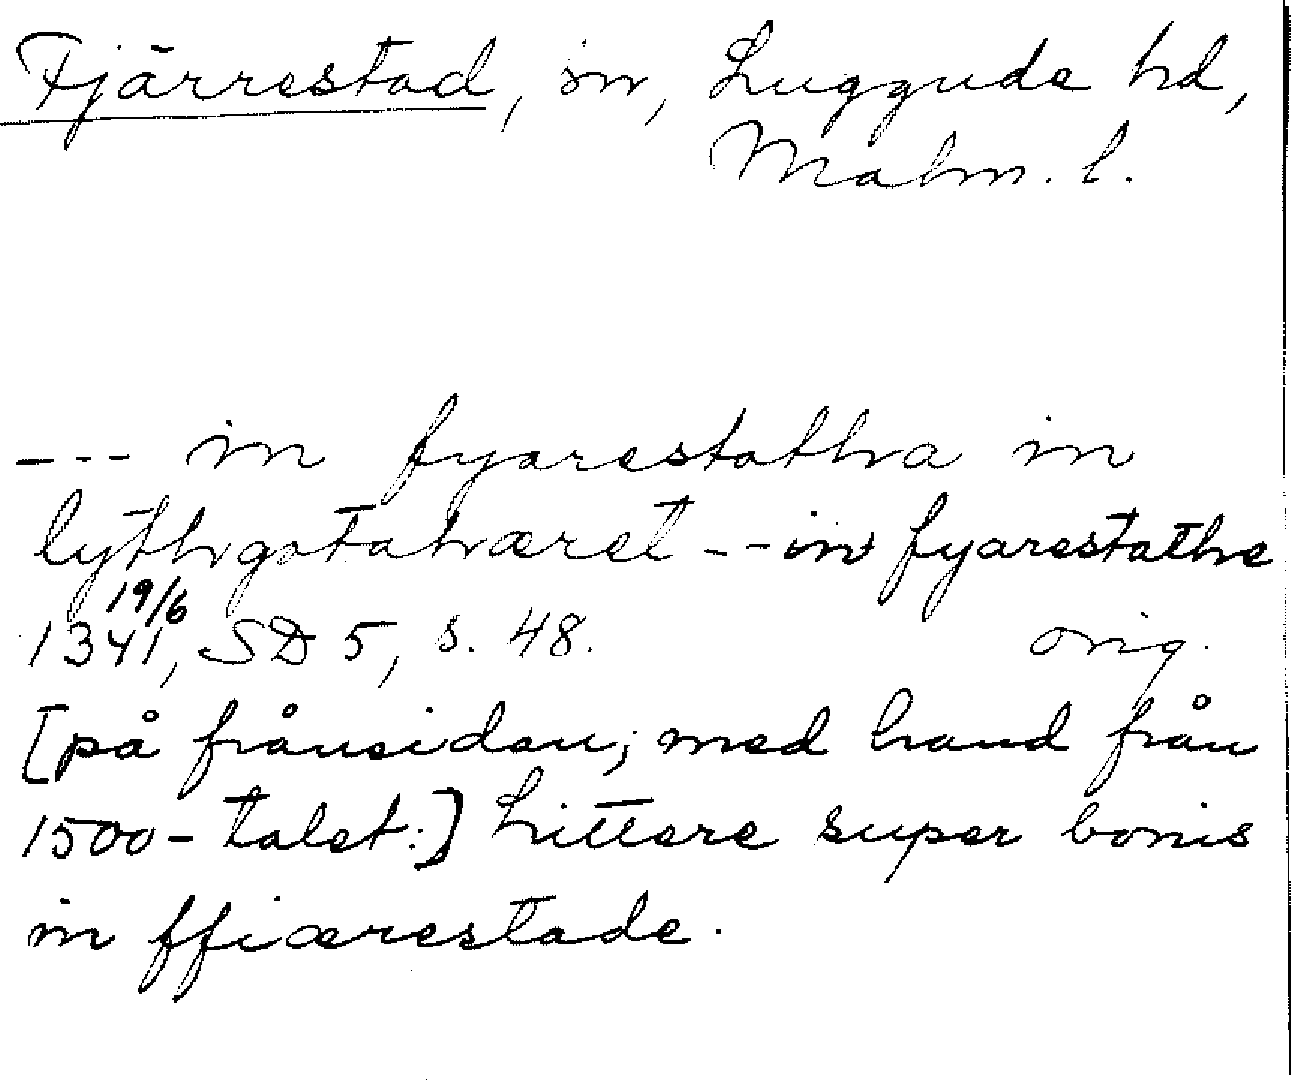 Fjärrestad, sn, Luggude hd,
Malm. l.
--- in fyarestatha in
lythgotahæret -- in fyarestathe
19/6
1341, SD 5, s. 48. orig.
[på frånsidan; med hand från
1500-talet:] Littere super bonis
in ffiærestade.